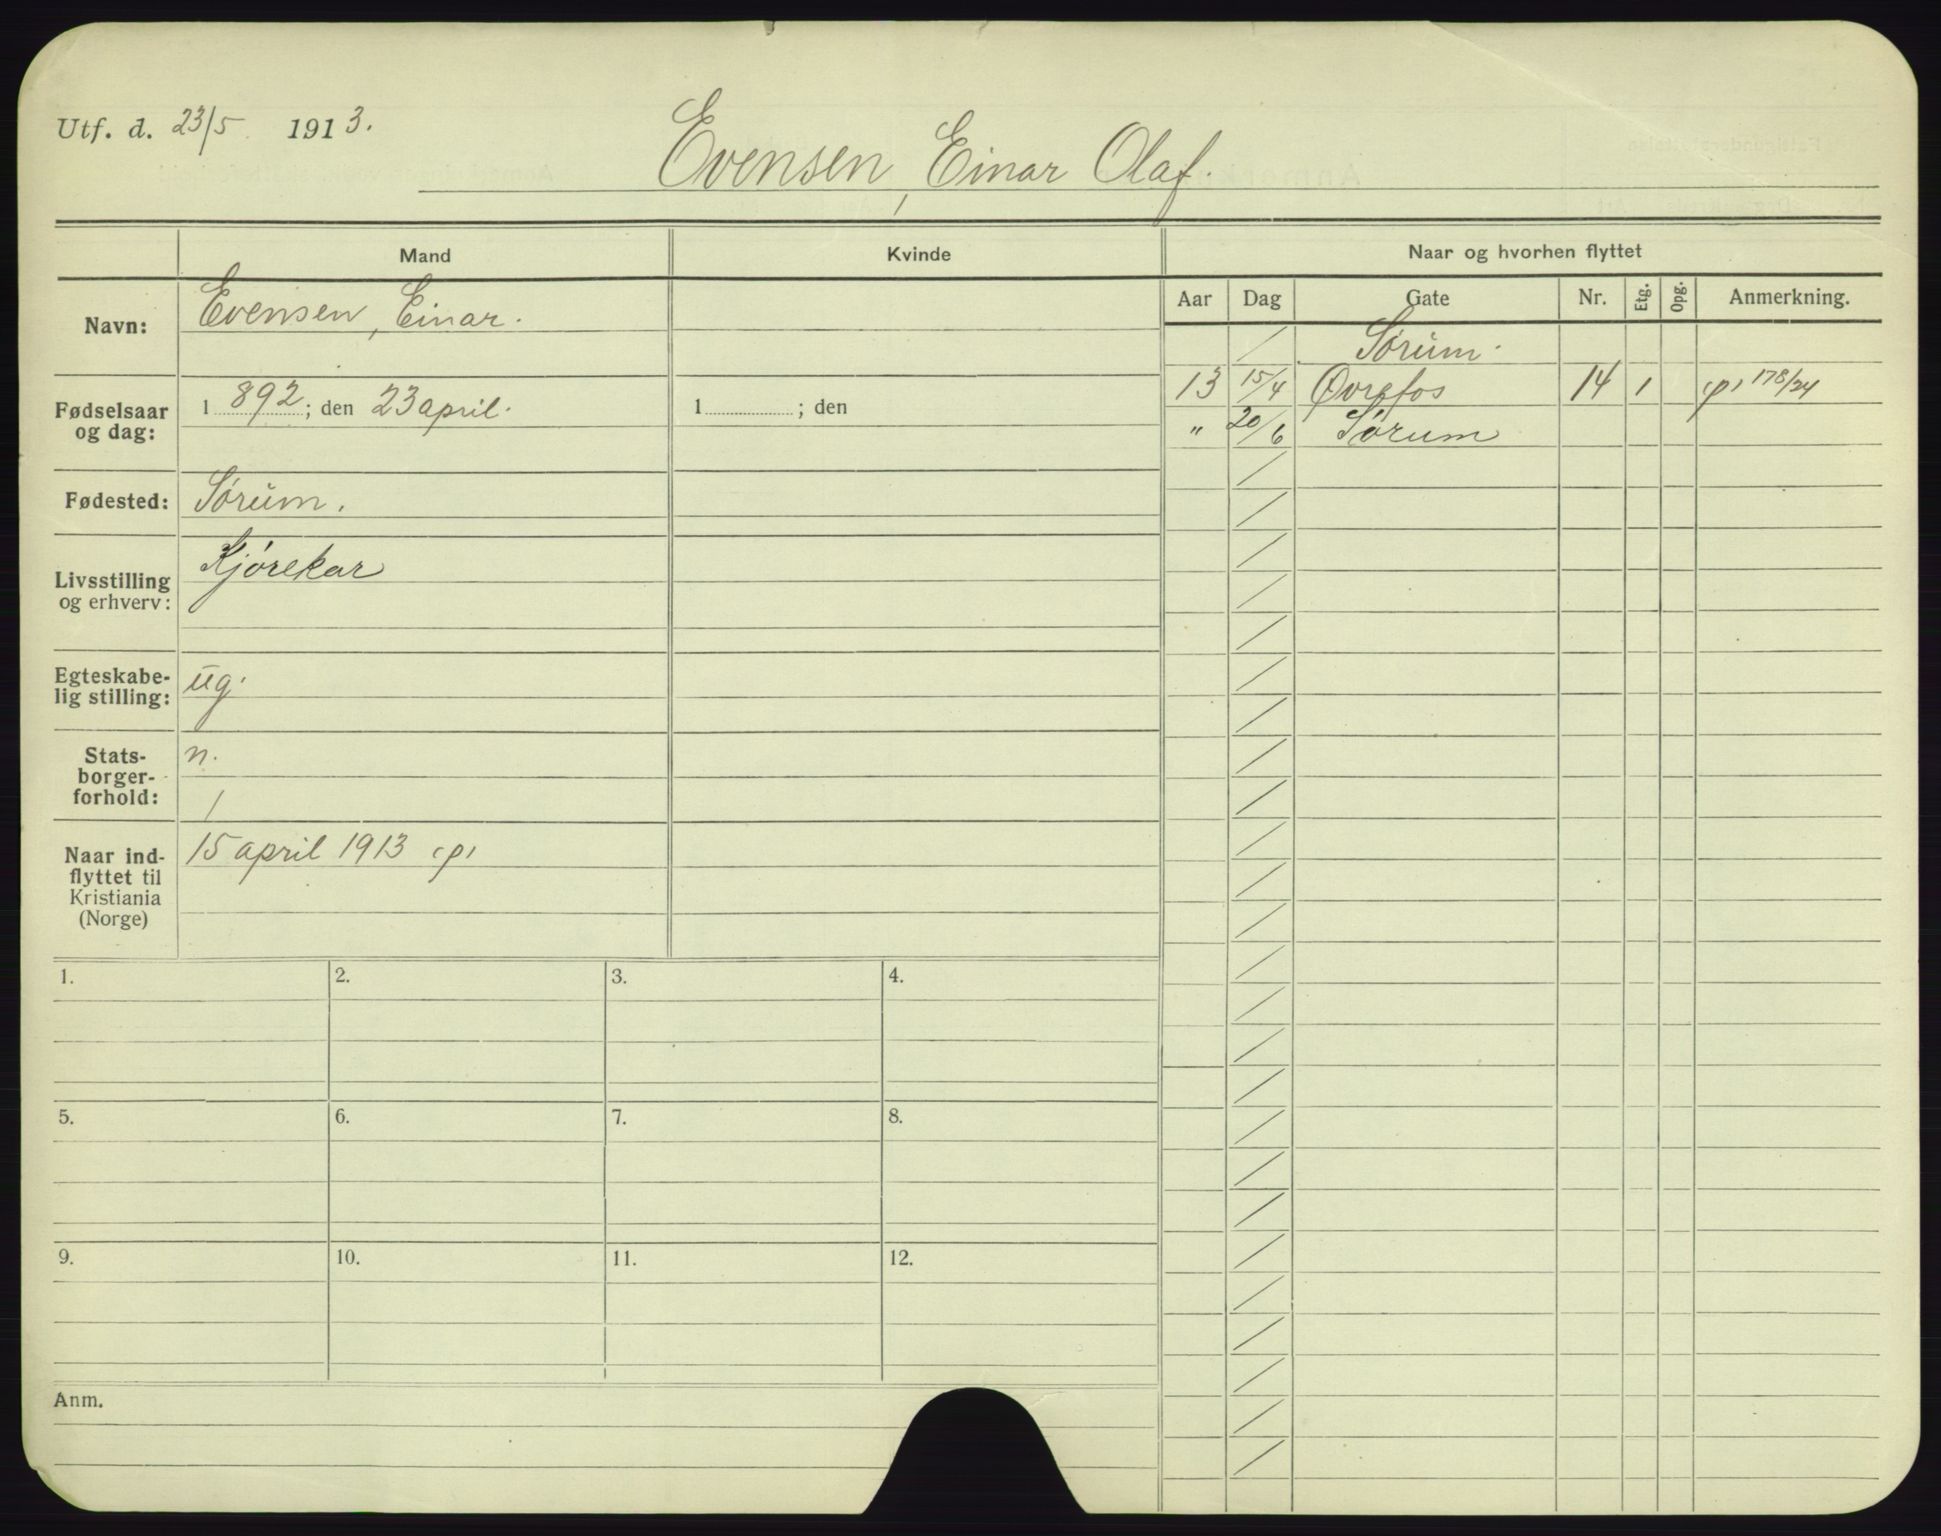 Utf. d. 23/5 1913.
Evensen, Einar Olaf.
Mand
Kvinde
Naar og hvorhen flyttet
Aar Dag Gate Nr. Etg. Opg. Anmerkning.
Navn: Evensen, Einar.
Fødselsaar og dag: 1892; den 23 april. 1 ; den
Fødested: Sørum.
Livsstilling og erhverv: Kjørekar
Egteskabe-
lig stilling: ug.
Stats-
borger-
forhold: n.
Naar ind-
flyttet til
Kristiania
(Norge)
15 april 1913 (p)
Sørum.
13 15/4 Øvrefos 14 1 (p) 178/24
" 20/6 Sørum
1. 2. 3. 4.
5. 6. 7. 8.
9. 10. 11. 12.
Anm.